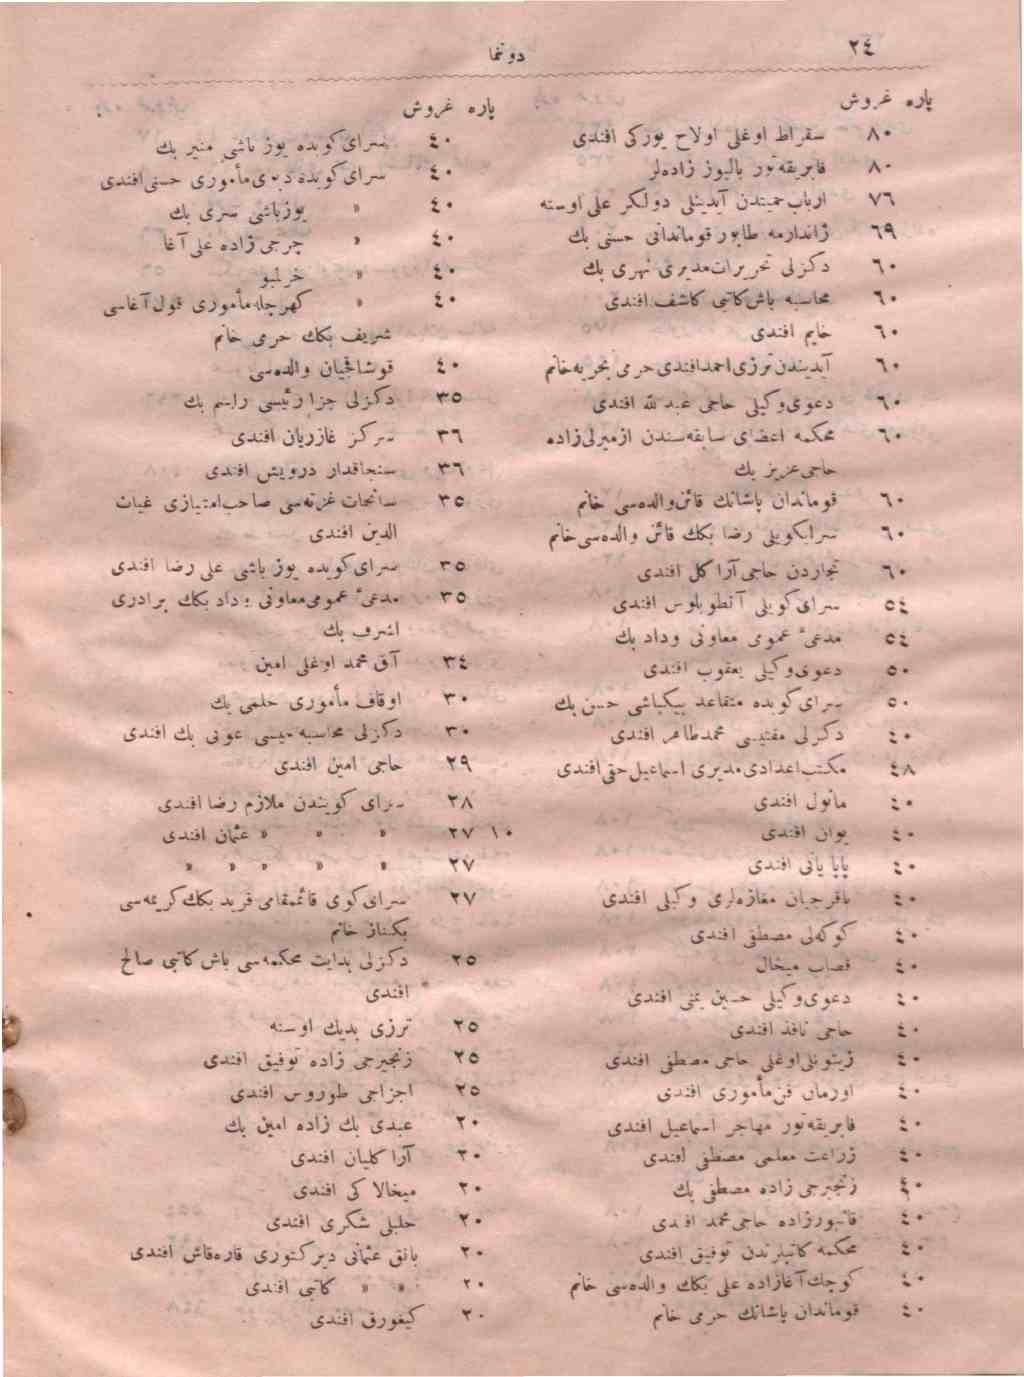 ٢٤
دونما
پاره غروش
٨٠ سقراط اوغلی اولاح یورکی افندی
٨٠ فابریقه‌تور بالیوز زاده‌لر
٧٦ ارباب حمیتدن آیدینلی دولکر علی اوسته
٦٩ ژاندارمه طابور قوماندانی حسنی بك
٦٠ دکزلی تحریرات مدیری نهری بك
٦٠ محاسبه باش کاتبی کاشف افندی
٦٠ خایم افندی
٦٠ آیدیندن ترزی احمد افندی حرمی بحریه خانم
٦٠ دعوی وکیلی حاجی عبدالله افندی
٦٠ محکمه اعضای سابقه‌سندن ازمیرلی زاده
حاجی عزیز بك
٦٠ قوماندان پاشانك قائن والده‌سی خانم
٦٠ سرایکویلی رضا بكك قائن والده‌سی خانم
٦٠ تجاردن حاجی آراکل افندی
٥٤ سرای کویلی آنطوبلوس افندی
٥٤ مدعیٔ عمومی معاونی وداد بك
٥٠ دعوی وکیلی یعقوب افندی
٥٠ سرای کویده متقاعد بیکباشی حسن بك
٤٠ دکزلی مفتیسی محمد طاهر افندی
٤٨ مکتب اعدادی مدیری اسماعیل حقی افندی
٤٠ مانول افندی
٤٠ یوان افندی
٤٠ پاپا یانی افندی
٤٠ باقرجیان مغازه‌لری وکیلی افندی
٤٠ کوکه‌لی مصطفی افندی
٤٠ قصاب میخال
٤٠ دعوی وکیلی حسین یمنی افندی
٤٠ حاجی نافذ افندی
٤٠ زیتونلی اوغلی حاجی مصطفی افندی
٤٠ اورمان فن مأموری افندی
٤٠ فابریقه‌تور مهاجر اسماعیل افندی
٤٠ زراعت معلمی مصطفی افندی
٤٠ زنجیرجی زاده مصطفی بك
٤٠ زاده حاجی محمد افندی
٤٠ محکمه کاتبلرندن توفیق افندی
٤٠ کوچك آغازاده علی بكك والده‌سی خانم
٤٠ قوماندان پاشانك حرمی خانم
پاره غروش
٤٠ سرای کویده یوز باشی منیر بك
٤٠ سرای کویده مأموری حسنی افندی
٤٠ » یوزباشی سری بك
٤٠ » چرجی زاده علی آغا
٤٠ » خرلمبو
٤٠ » مأموری قول آغاسی
شریف بكك حرمی خانم
٤٠ قوشاقجیان والده‌سی
٣٥ دکزلی جزا رئیسی راسم بك
٣٦ سرکز غازریان افندی
٣٦ سنجاقدار درویش افندی
٣٥ سانحات غزته‌سی صاحب امتیازی غیاث
الدین افندی
٣٥ سرای کویده یوز باشی علی رضا افندی
٣٥ مدعیٔ عمومی معاونی وداد بكك برادری
اشرف بك
٣٤ آق محمد اوغلی امین
٣٠ اوقاف مأموری حلمی بك
٣٠ دکزلی محاسبه‌جیسی عونی بك افندی
٢٩ حاجی امین افندی
٢٨ سرای کویندن ملازم رضا افندی
١٠ ٢٧ » » » عثمان افندی
٢٧ » » » » »
٢٧ سرای کوی قائممقامی فرید بكك کریمه‌سی
یکناز خانم
٢٥ دکزلی بدایت محکمه‌سی باش کاتبی صالح
افندی
٢٥ ترزی بدیك اوسته
٢٥ زنجیرجی زاده توفیق افندی
٢٥ اجزاجی طوروس افندی
٢٠ عبدی بك زاده امین بك
٢٠ آراکلیان افندی
٢٠ میخالاکی افندی
٢٠ حلبلی شکری افندی
٢٠ بانق عثمانی دیرکتوری قاره‌قاش افندی
٢٠ » » کاتبی افندی
٢٠ کیغورق افندی